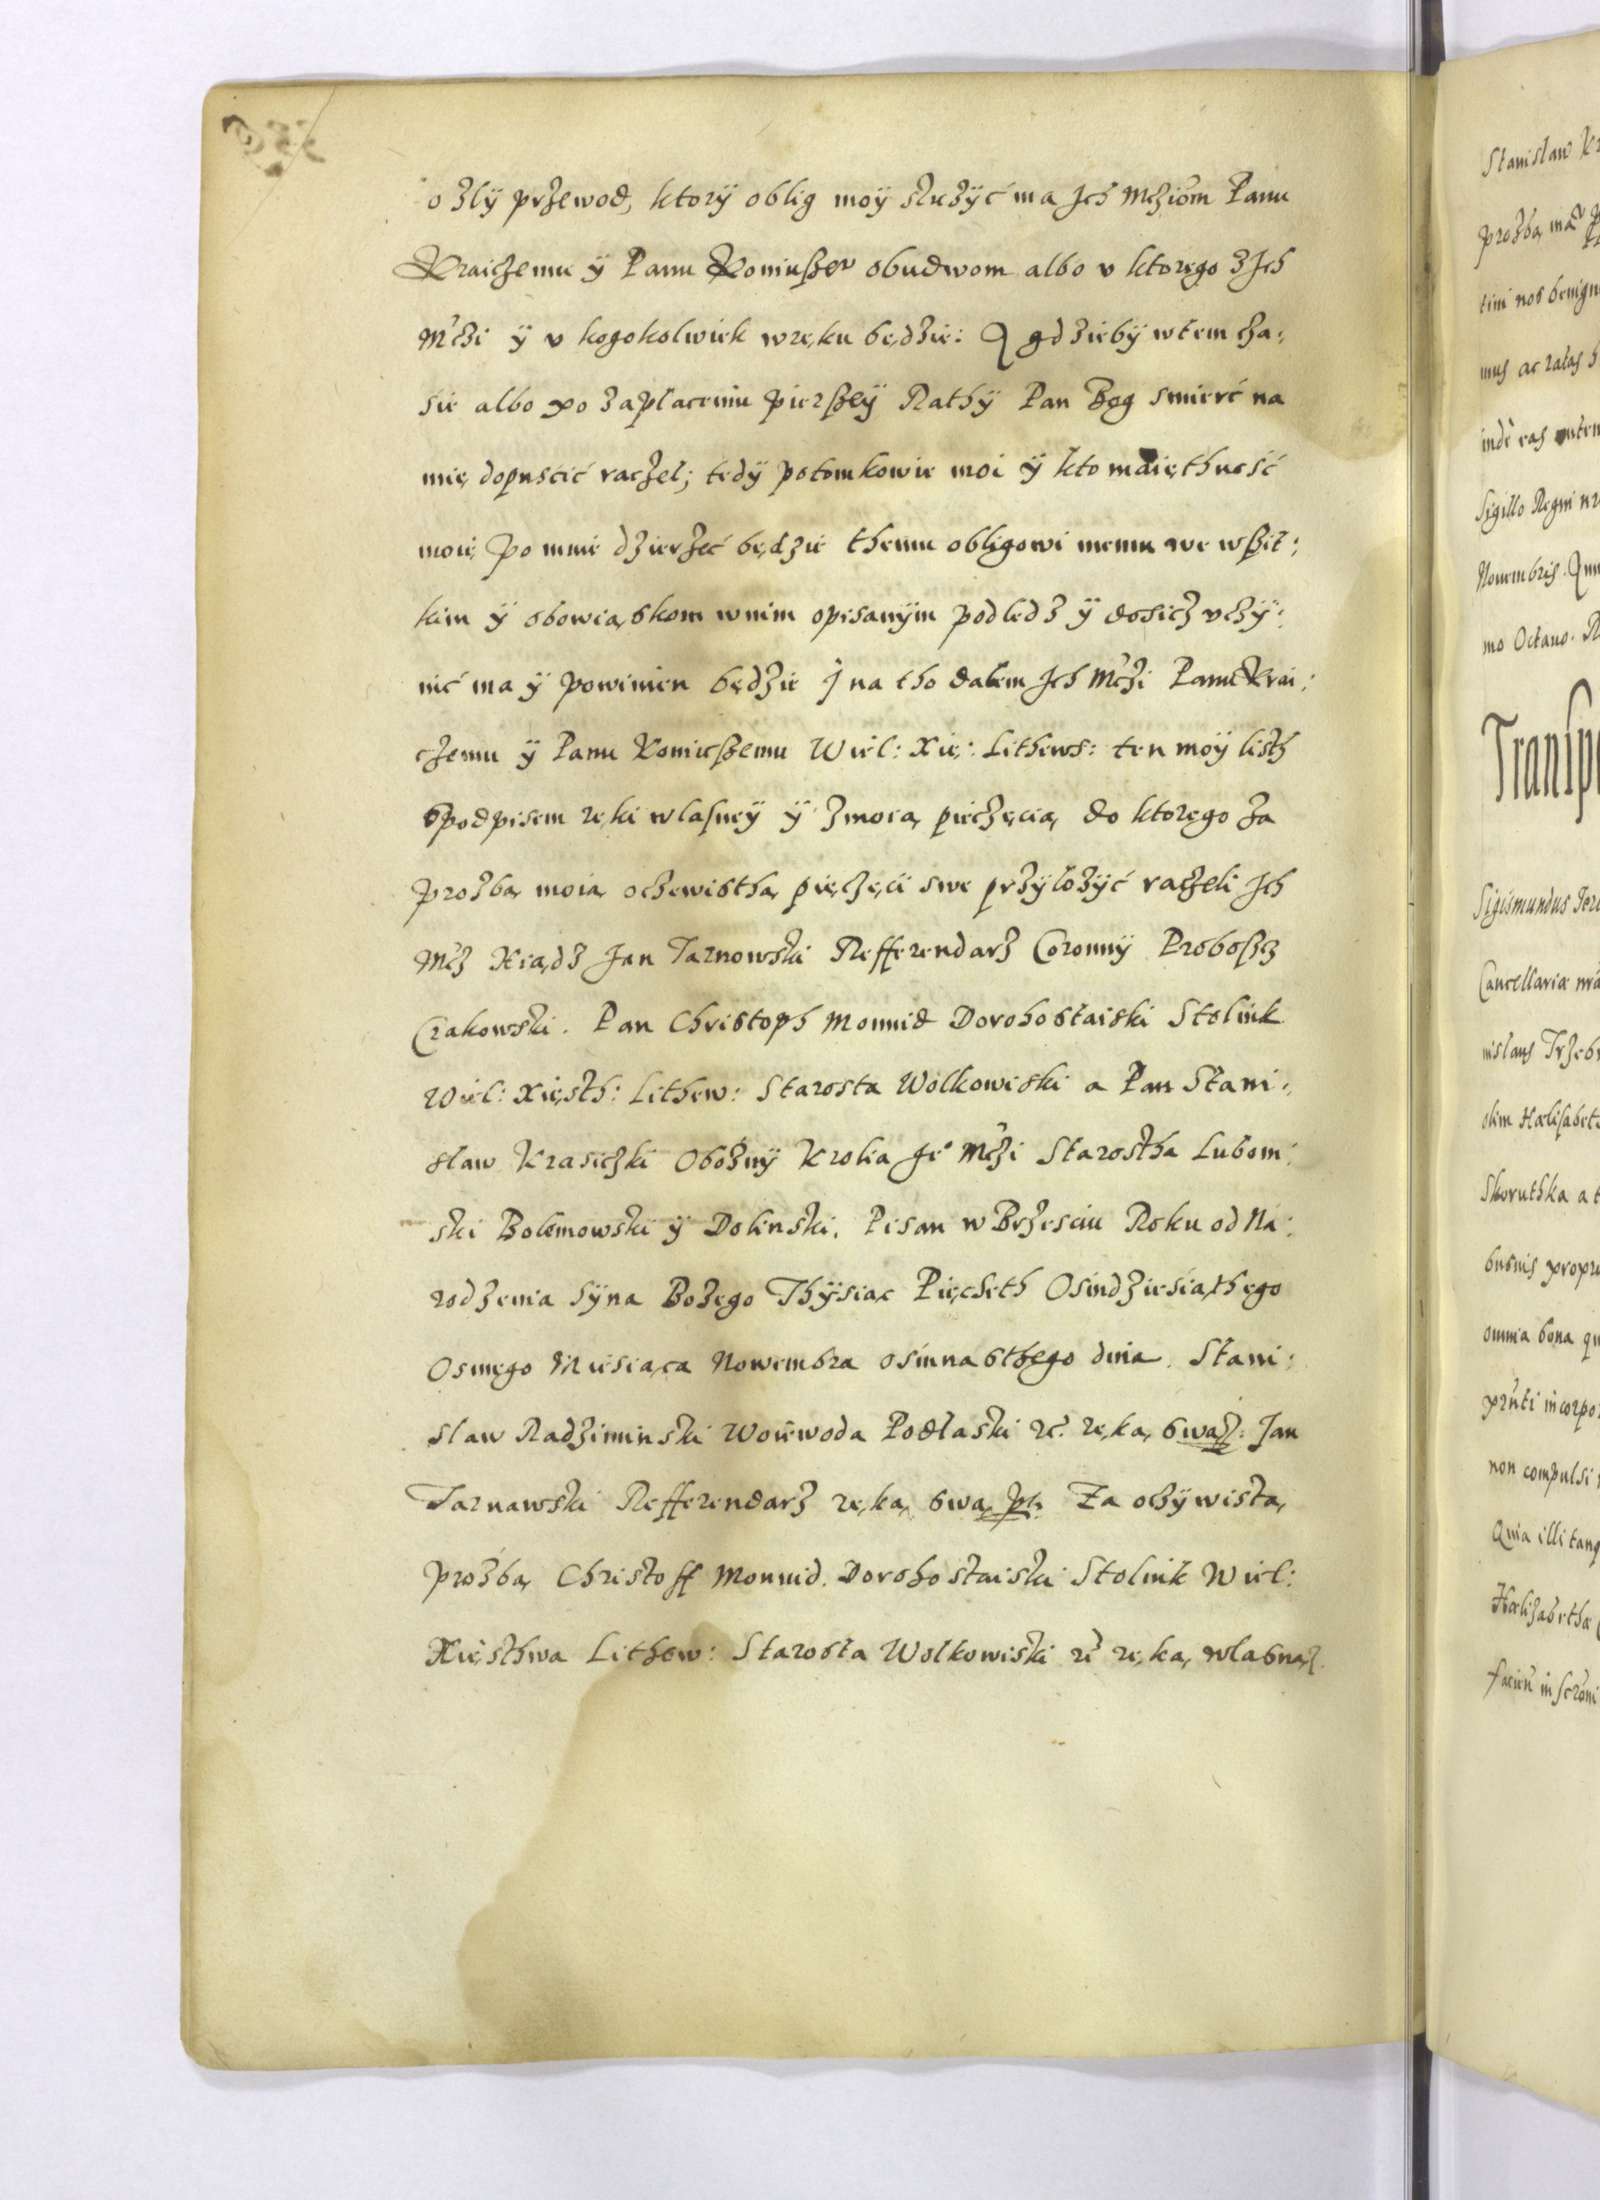 o zlÿ przewod, ktorÿ oblig moÿ służÿć ma Ich Mcziom Panu
Kraiczemu ÿ Panu Koniuszeu obudwom albo v ktorego z Ich
Mczi ÿ v kogokolwiek wręku będzie: A gdziebÿ wtem cza:
sie albo po zaplaceniu pierszeÿ Rathÿ Pan Bog smierć na
mię dopuscić raczel; tedÿ potomkowie moi ÿ kto maięthność
moię po mnie dzierżeć będzie themu obligowi memu we wszit:
kim ÿ obowiąskom wnim opisanÿm podledz ÿ dosicz vczÿ:
nić ma ÿ powinien będzie J na tho dalem Ich Mczi Panu Krai:
czemu ÿ Panu Koniuszemu Wiel: Xię: Lithews: ten moÿ listh
spodpisem ręki wlasneÿ ÿ zmoią pieczęcią, do ktorego za
prozbą moią oczewisthą pięczęci swe przÿlożÿć raczeli Ich
Mcz Xiądz Jan Tarnowski Refferendarz Coronnÿ Proboszcz
Crakowski. Pan Christoph Monuid Dorohostaiski Stolnik
Wiel: Xięsth: Lithew: Starosta Wolkowiski a Pan Stani:
slaw Krasiczki Oboznÿ Krolia Je° Mczi Starostha Lubom:
ski Bolemowski ÿ Dolinski. Pisan w Brzesciu Roku od Na:
rodzenia Sÿna Bożego Thÿsiąc Pięcseth Osmdziesiąthego
Osmego Miesiąca Nowembra osmnasthego dnia. Stani:
slaw Radziminski Woiewoda Podlaski ręką swą. Jan
Tarnawski Refferendarz ręką swą. Za oczÿwistą
prozbą Christoff Monuid Dorohostaiski Stolnik Wiel:
Xięsthwa Lithew: Starosta Wolkowiski ręką wlasną.
Stanislaw
prozbą
tini nos
mus ac ratas
inde eas
Sigillo Regni
Nouembris.
mo Octauo.
Sigismundus
Cancellariæ
olim
Skoruthka a
omnia bona
non compulsi
Quia illi